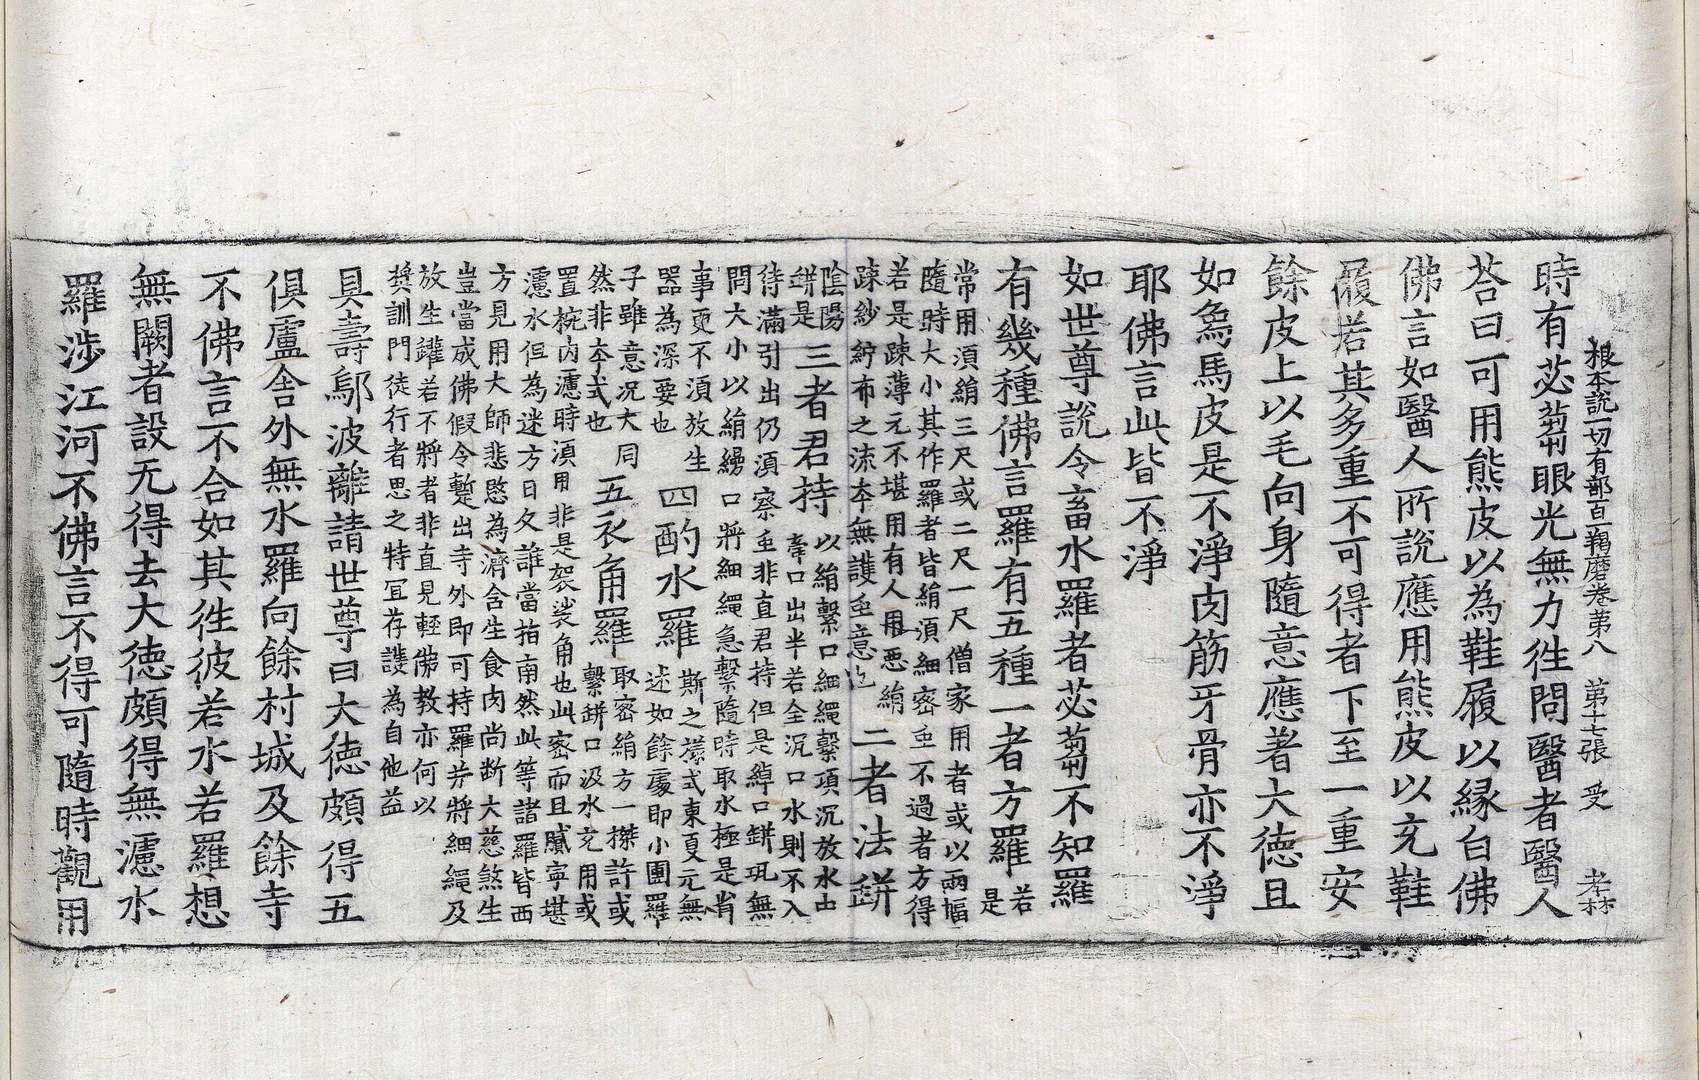 根本說一切有部百一羯磨卷第八 第十七張 受 孝林
時有苾蒭眼光無力徃問醫者醫人
荅曰可用熊皮以為鞋履以緣白佛
佛言如醫人所說應用熊皮以充鞋
履若其多重不可得者下至一重安
餘皮上以毛向身隨意應著大徳且
如象馬皮是不淨肉筋牙骨亦不淨
耶佛言此皆不淨
如世尊說令畜水羅者苾蒭不知羅
有幾種佛言羅有五種一者方羅 若是
常用須絹三尺或二尺一尺僧家用者或以兩幅
隨時大小其作羅者皆絹須細密䖝不過者方得
若是踈薄元不堪用有人用惡絹
踈紗紵布之流本無護䖝意也 二者法缾
陰陽
缾是 三者君持 以絹繫口細繩繫項沉放水中
牽口出半若全沉口水則不入
待滿引出仍須察䖝非直君持但是綽口缾瓨無
問大小以絹縵口將細繩急繫隨時取水極是省
事更不須放生
器為深要也 四酌水羅 斯之樣式東夏元無
述如餘處即小團羅
子雖意況大同
然非本式也 五衣角羅 取密絹方一搩許或
繫缾口汲水充用或
置椀內濾時須用非是袈裟角也此密而且膩寧堪
濾水但為迷方日久誰當指南然此等諸羅皆西
方見用大師悲愍為濟含生食肉尚断大慈煞生
豈當成佛假令暫出寺外即可持羅并將細繩及
放生罐若不將者非直見輕佛教亦何以
奬訓門徒行者思之特冝存護為自他益
具壽鄔波離請世尊曰大徳頗得五
俱盧舍外無水羅向餘村城及餘寺
不佛言不合如其徃彼若水若羅想
無闕者設无得去大徳頗得無濾水
羅涉江河不佛言不得可隨時觀用